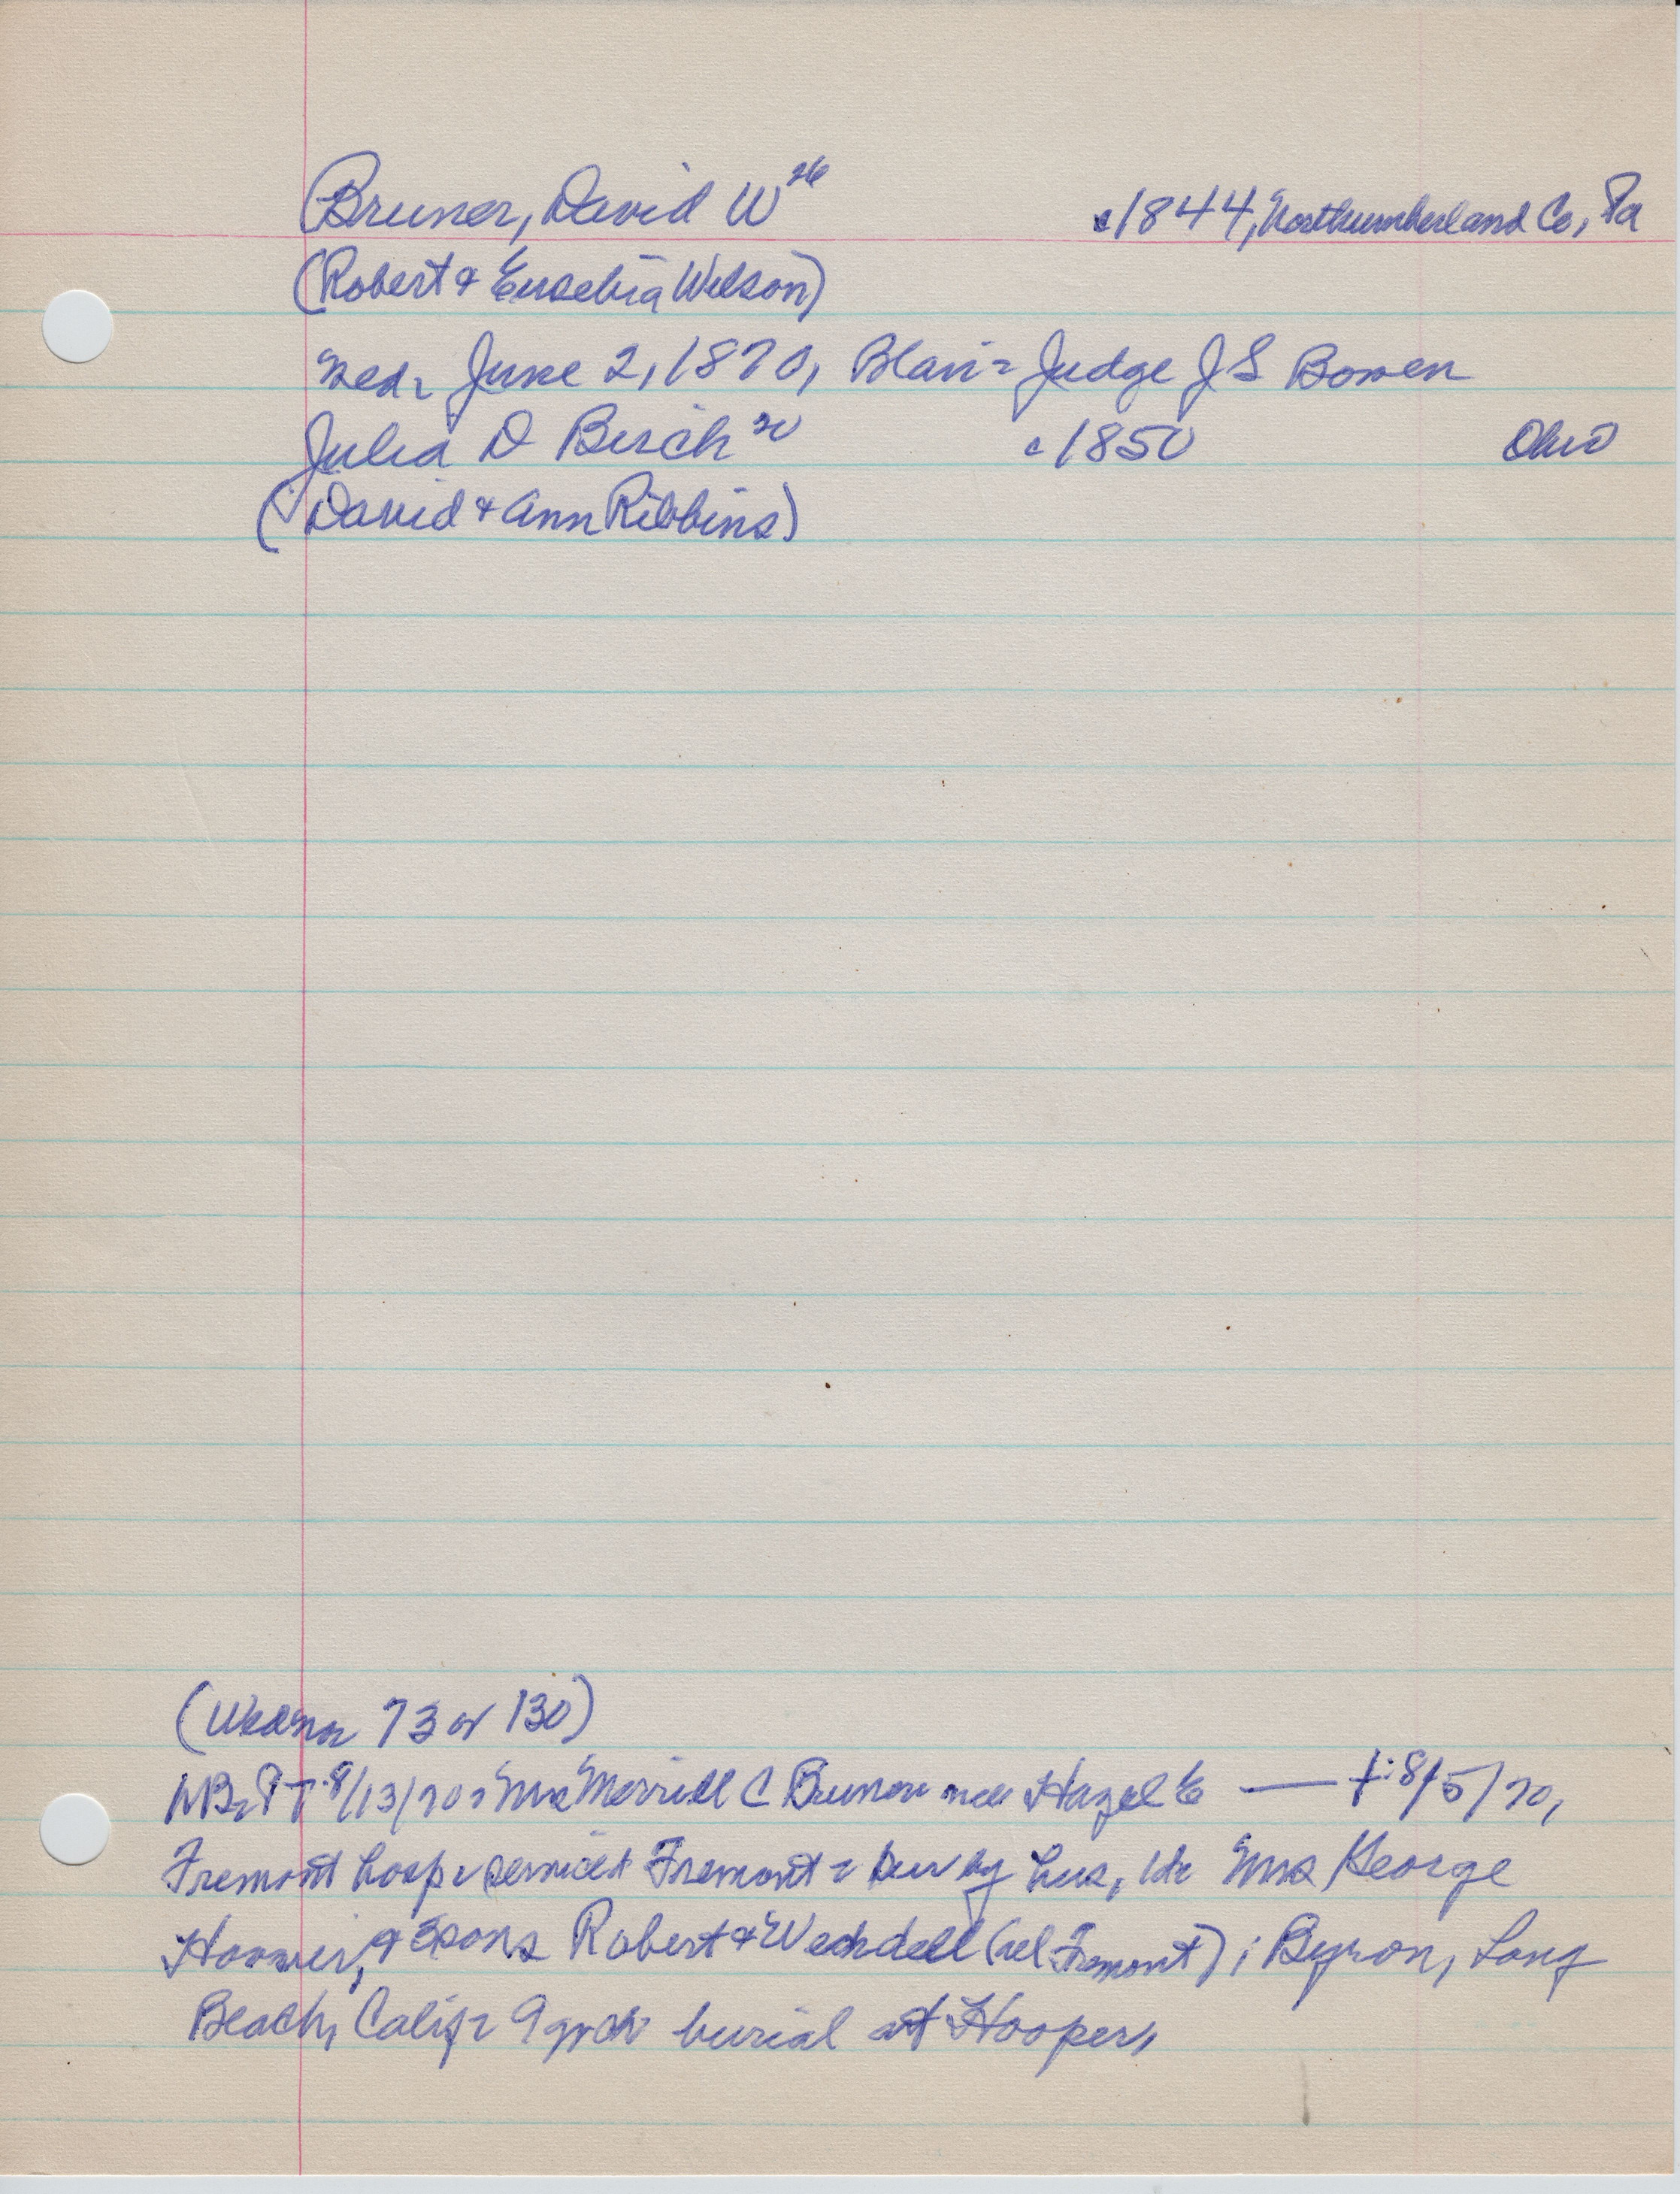 Bruner, David W 26 c1844, Northumberland Co, Pa
(Robert & Eusebia Wilson)
Med- June 2, 1870, Blair- Judge J S Bowen
Julia D Birch 20 c1850 Ohio
(David & Ann Ribbins)
73 or 130)
8/13/70 Mrs Merrill C Bruner nee Hazel E — 8/5/70,
Fremont hosp services Fremont - sur by hus, Mrs George
Hoosier, & 3 sons Robert & Wendell (all Fremont); Byron, Long
Beach, Calif- 9 grch burial at Hooper,